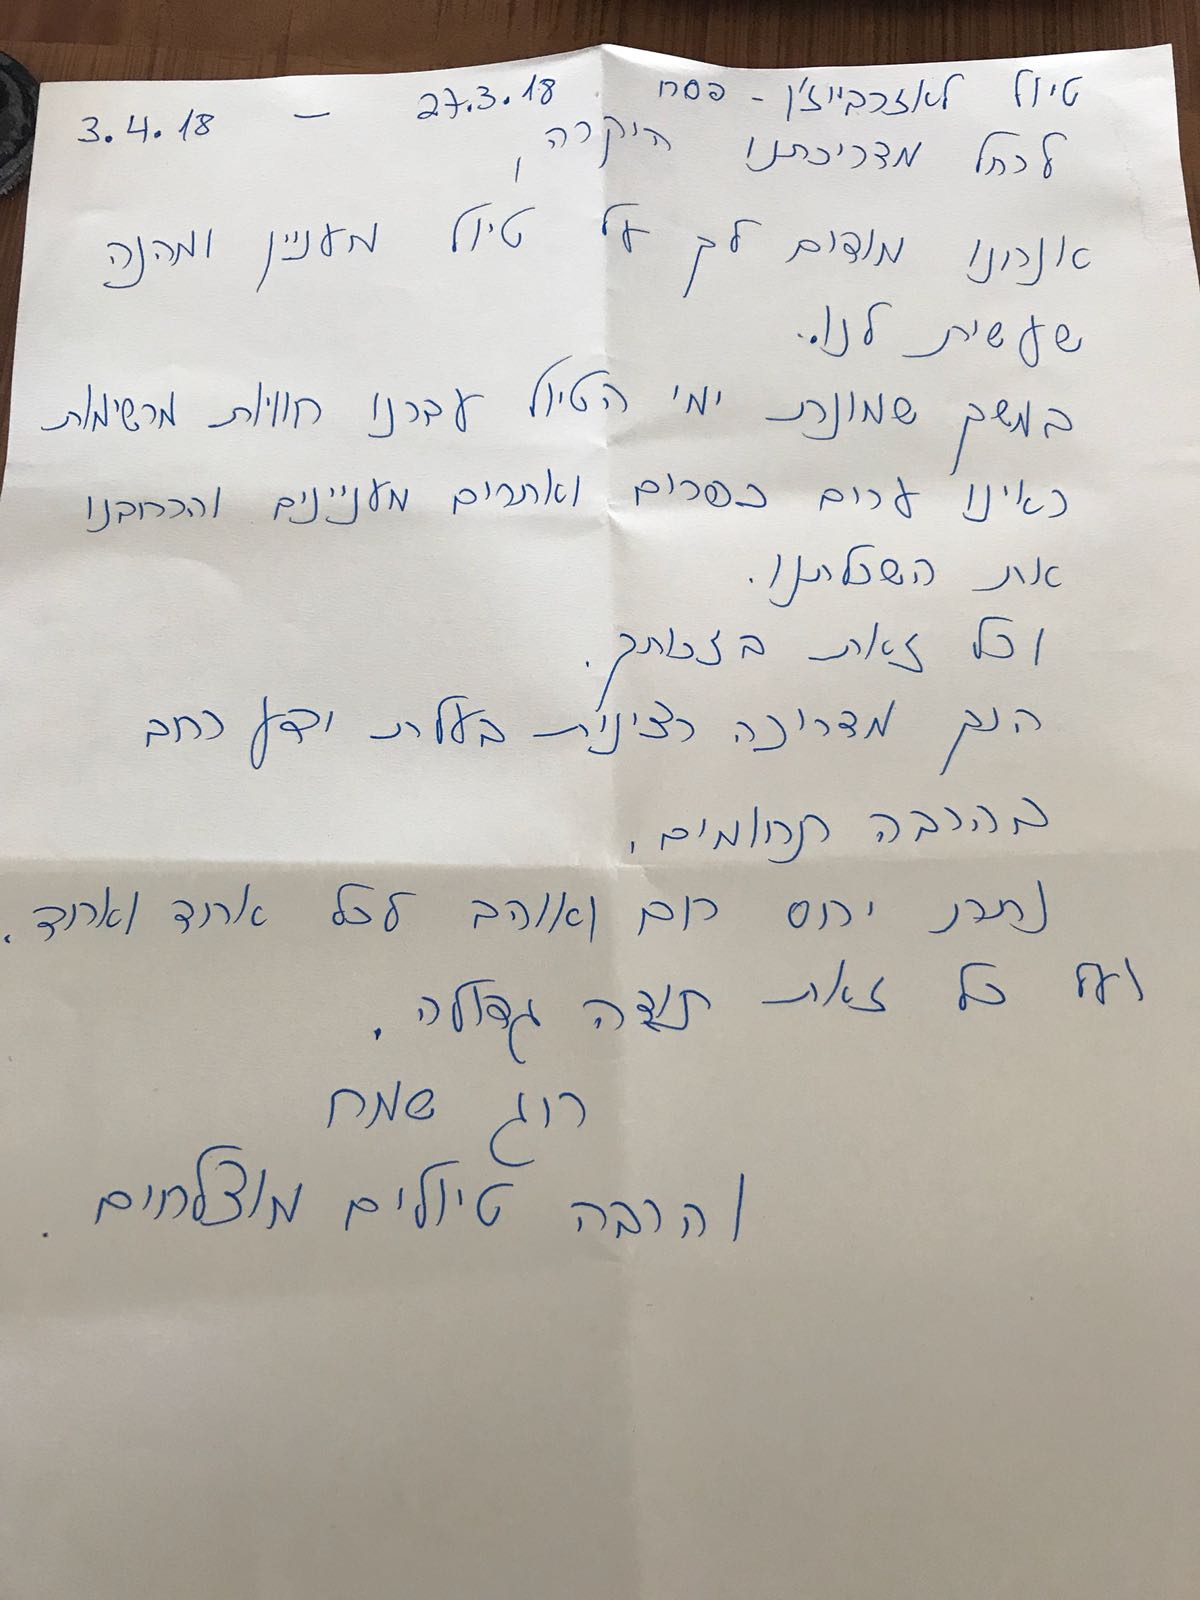 טיול לאזרבייז'ן - פסח 27.3.18 – 3.4.18
לרחל מדריכתנו היקרה,
אנחנו מודים לך על טיול מעניין ומהנה
שעשית לנו..
במשך שמונת ימי הטיול עברנו חוויות מרשימות
ראינו ערים כפרים ואתרים מעניינים והרחבנו
את השכלתנו.
וכל זאת בזכותך.
הנך מדריכה רצינית בעלת ידע רחב
בהרבה תחומים,
נתת יחס חם ואוהב לכל אחד ואחד.
ועל כל זאת תודה גדולה.
חג שמח
והרבה טיולים מוצלחים.